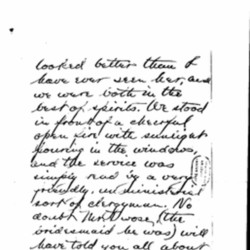 looked better than I
have ever seen her, and
we were both in the
best of spirits. We stood
in front of a cheerful
open fire with sunlight
pouring in the windows,
and the service was
simply read by a very
friendly, un ministerial
sort of clergyman. No
doubt Montrose, (the
bridesmaid he was) will
have told you all about